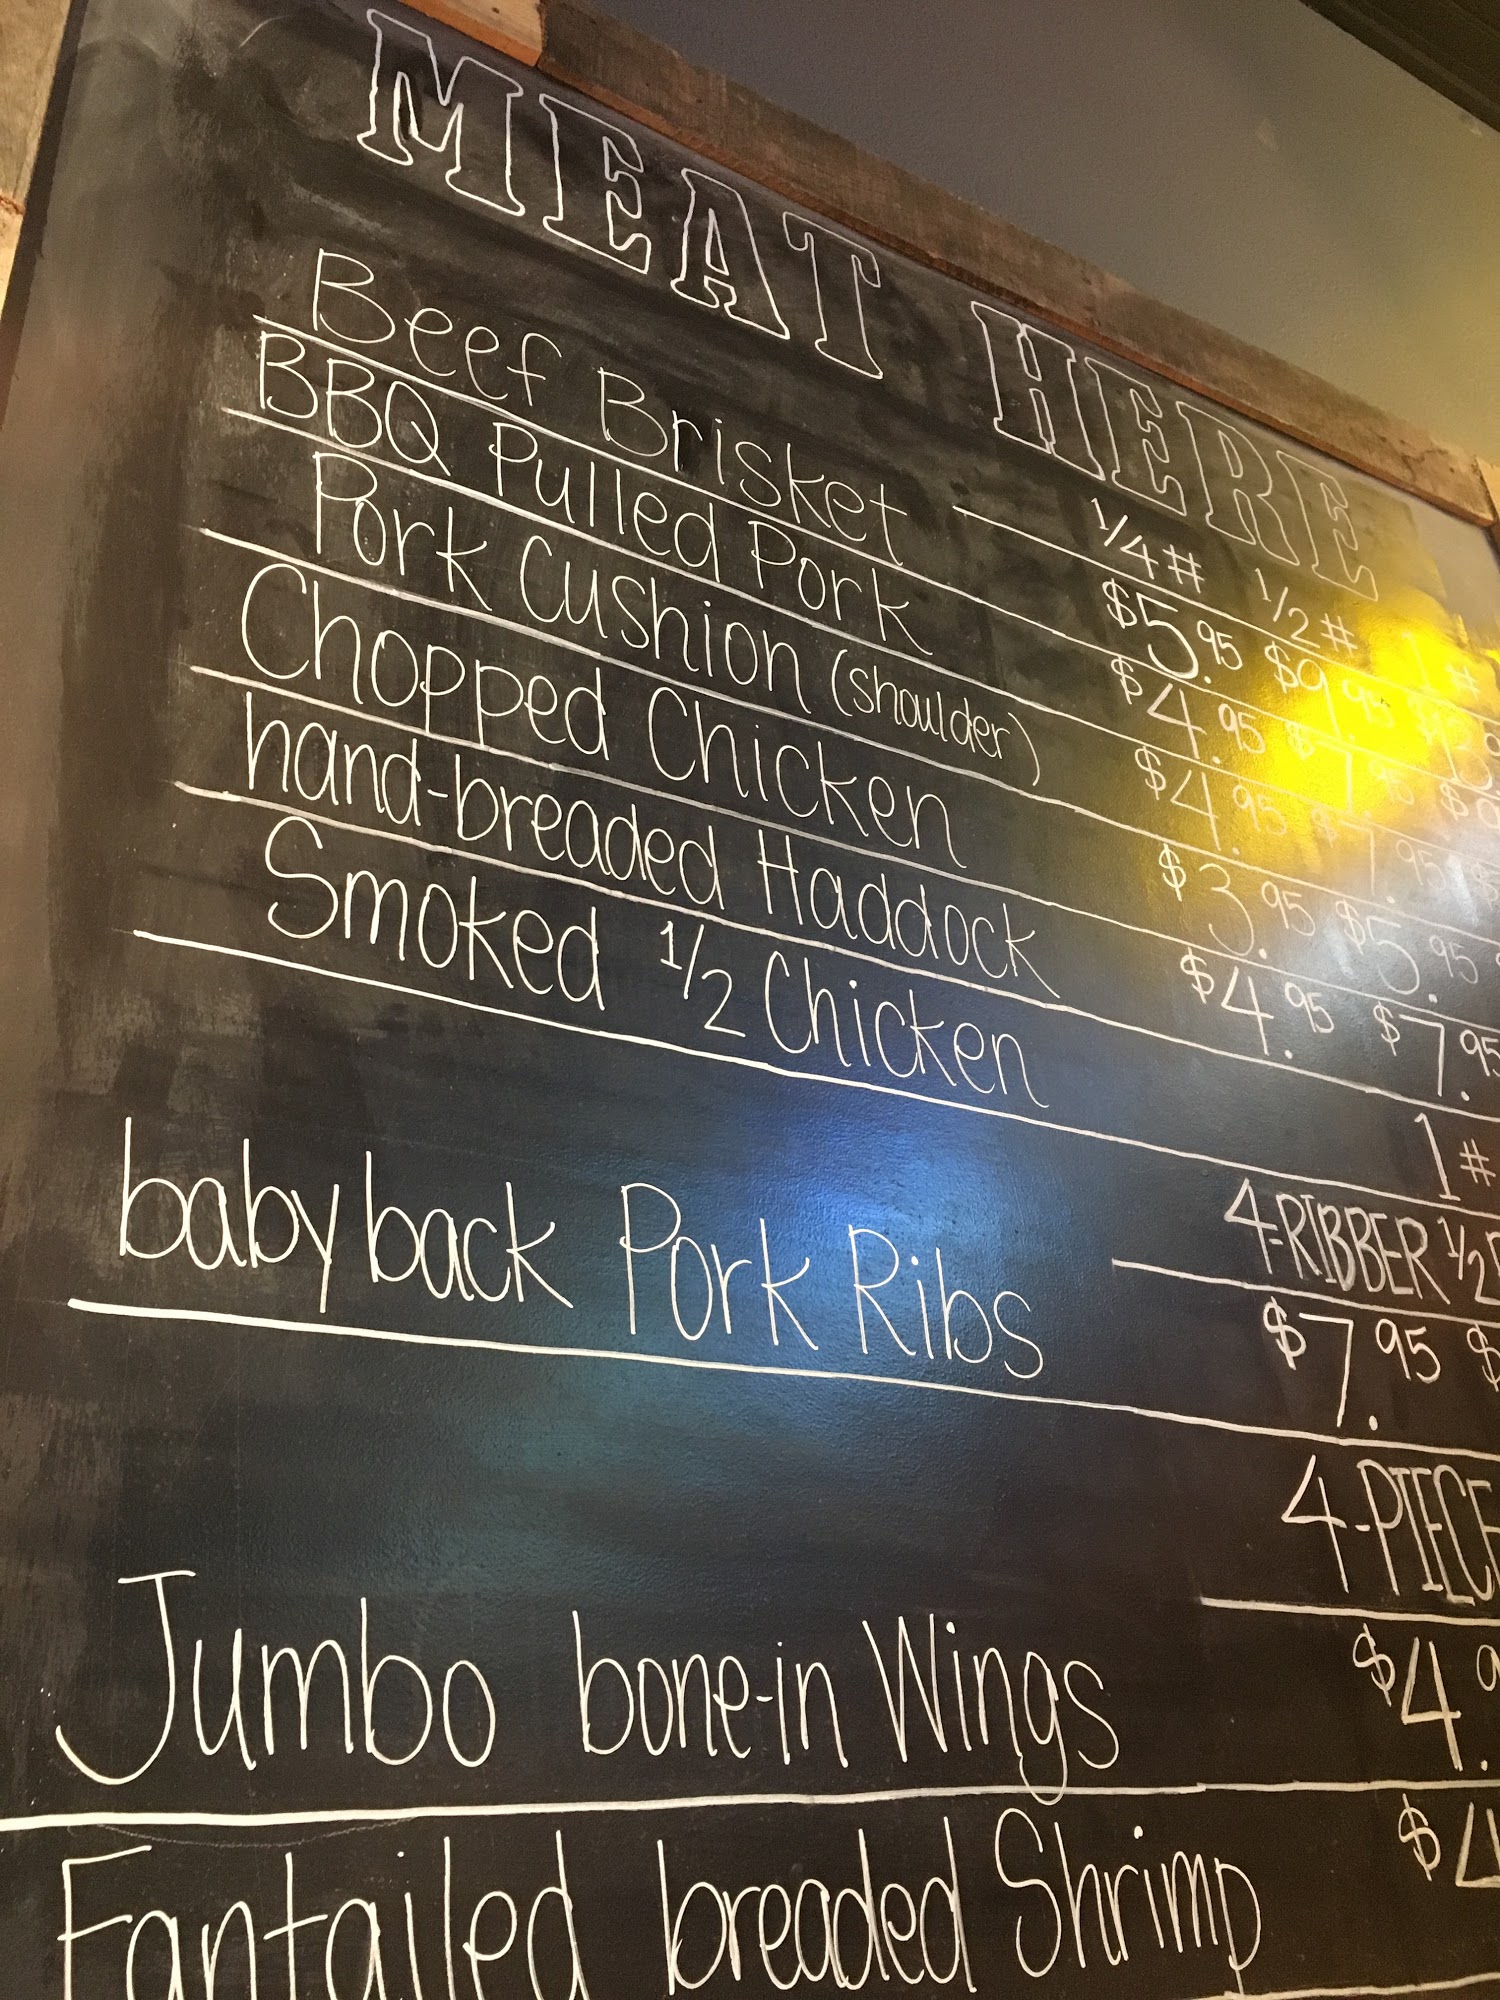 MEAT HERE
1/4# 1/2# 1#
Beef Brisket $5.95 $9.95
BBQ Pulled Pork $4.95 $7.95
Pork Cushion (shoulder) $4.95 $7.95
Chopped Chicken $3.95 $5.95
hand-breaded Haddock $4.95 $7.95
Smoked 1/2 Chicken 1#
4-RIBBER 1/2
baby back Pork Ribs $7.95 $
4-PIECE
Jumbo bone-in Wings $4.9
Fantailed breaded Shrimp $4